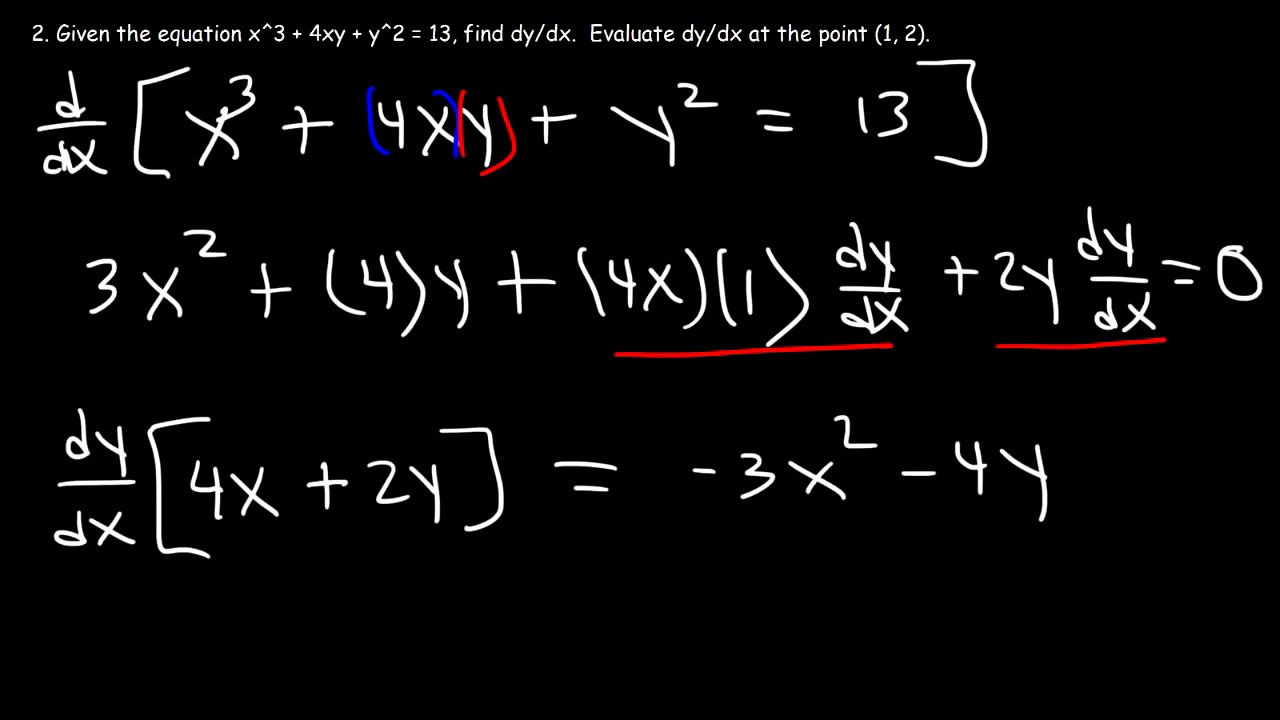 2. Given the equation x^3 + 4xy + y^2 = 13, find dy/dx. Evaluate dy/dx at the point (1, 2).
d/dx [x³ + (4x)(y) + y² = 13]
3x² + (4)y + (4x)(1) dy/dx + 2y dy/dx = 0
dy/dx [4x + 2y] = -3x² - 4y